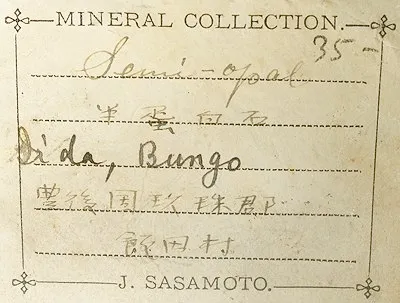 MINERAL COLLECTION.
35-
Semi-opal
半蛋白石
Iida, Bungo
豊後国玖珠郡
飯田村
J. SASAMOTO.